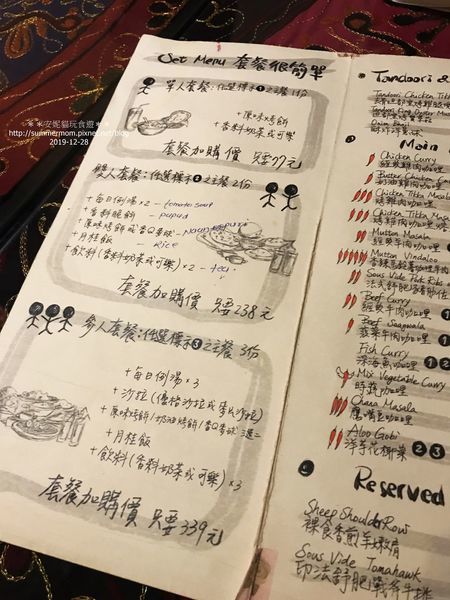 ＊＊安妮貓玩食遊＊＊
http://summermom.pixnet.net/blog
2019-12-28
Set Menu 套餐很簡單
單人套餐：任選標示❶之主餐1份
+原味烤餅
+香料奶茶或可樂
套餐加購價 只要77元
雙人套餐：任選標示❷之主餐2份
+每日例湯 - tomato soup
+香料脆餅 - papad
+原味烤餅或香Q麥球
+月桂飯 rice
+飲料(香料奶茶或可樂)×2 - tea
套餐加購價 只要238元
參人套餐：任選標示❸之主餐3份
+每日例湯×3
+沙拉(優格沙拉或麥片沙拉)
+原味烤餅/奶油烤餅/香Q麥球
+月桂飯
+飲料(香料奶茶或可樂)×3
套餐加購價 只要339元
Tandoori &
Tandoori Chicken Tikka
Main
Chicken Curry
經典雞肉咖哩
Butter Chicken
奶油雞肉咖哩
Chicken Tikka Masala
烤雞肉咖哩
Chicken Tikka
Mutton Masala
經典羊肉咖哩
Mutton Vindaloo
Sous Vide Pork Ribs
Beef Curry
經典牛肉咖哩
Beef Saagwala
菠菜牛肉咖哩
Fish Curry
深海魚咖哩
Mix Vegetable Curry
時蔬咖哩
Chana Masala
鷹嘴豆咖哩
Aloo Gobi
洋芋花椰菜
Reserved
Sheep Shoulder Row
Sous Vide Tomahawk
印法舒肥戰斧牛排